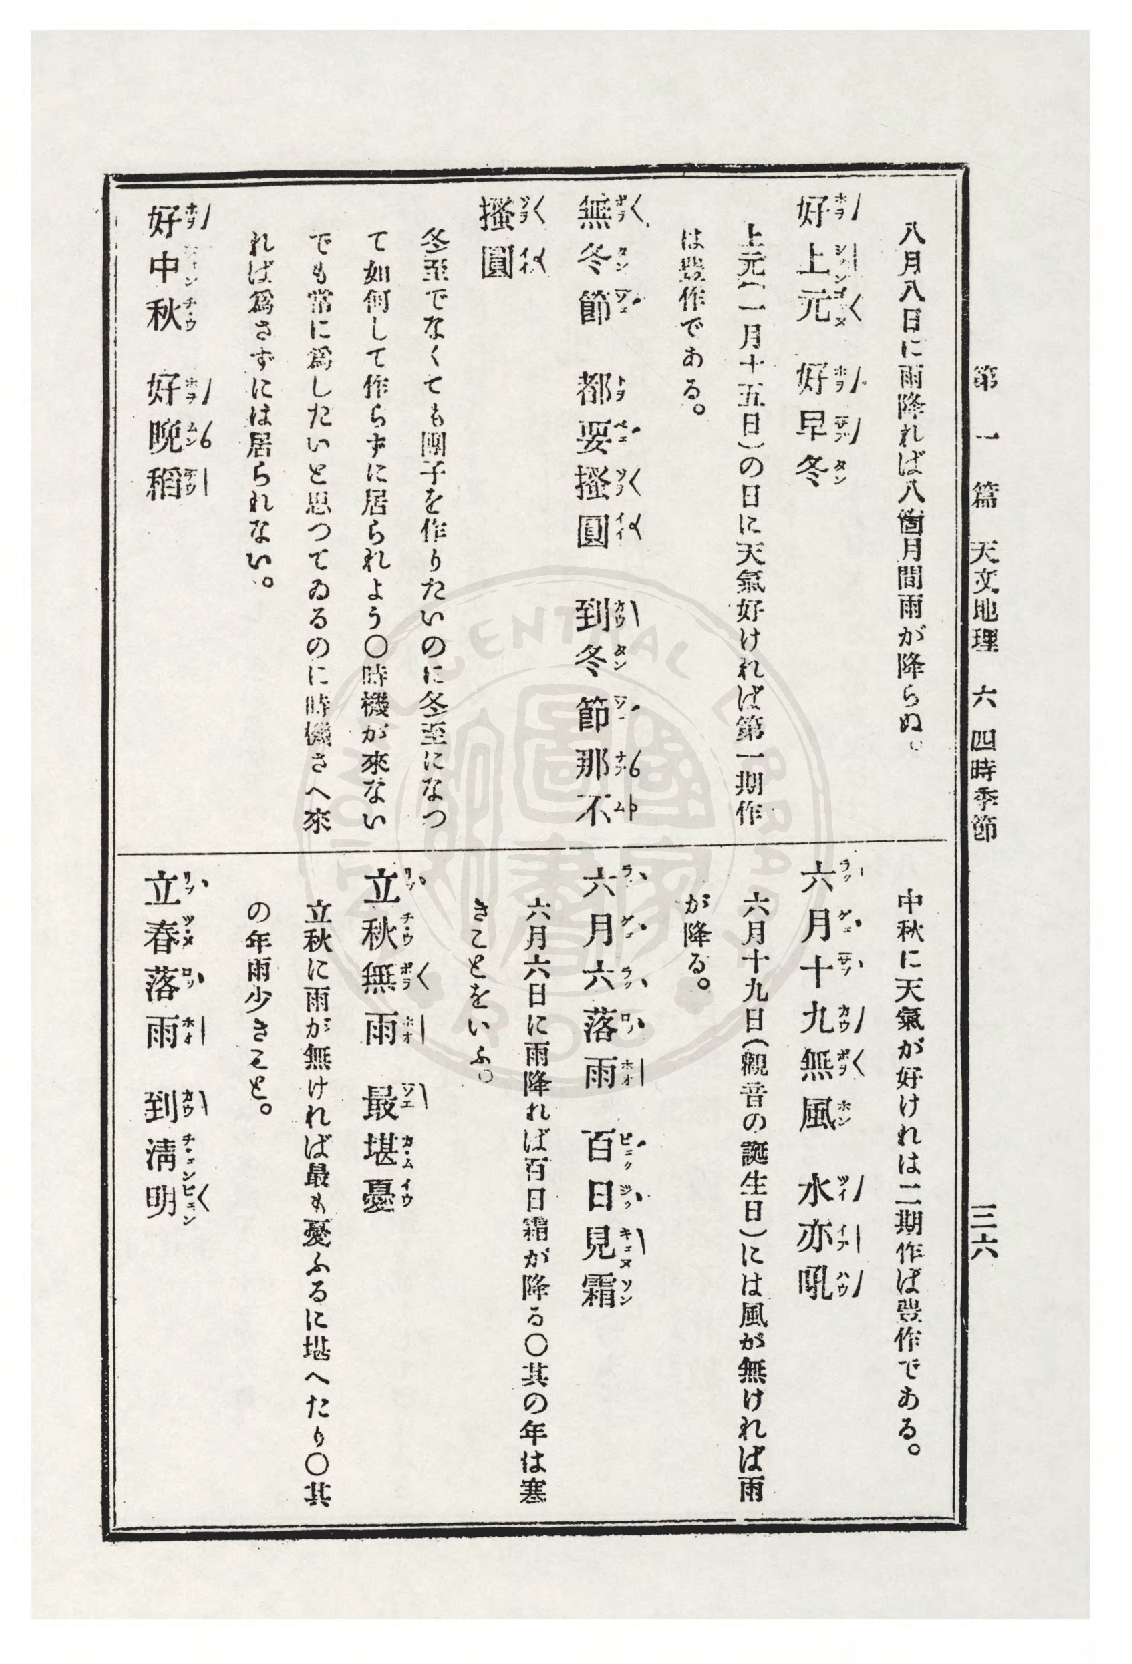 第一篇 天文地理 六 四時季節
三六
八月八日に雨降れば八箇月間雨が降らぬ。
好上元 好早冬
上元(一月十五日)の日に天氣好ければ第一期作
は豐作である。
無冬節 都要搔圓 到冬節那不
搔圓
冬至でなくても團子を作りたいのに冬至になつ
て如何して作らずに居られよう〇時機が來ない
でも常に爲したいと思つてゐるのに時機さへ來
れば爲さずには居られない。
好中秋 好晩稻
中秋に天氣が好ければ二期作ば豐作である。
六月十九無風 水亦吼
六月十九日(觀音の誕生日)には風が無ければ雨
が降る。
六月六落雨 百日見霜
六月六日に雨降れば百日霜が降る〇其の年は寒
きことをいふ。
立秋無雨 最堪憂
立秋に雨が無ければ最も憂ふるに堪へたり〇其
の年雨少きこと。
立春落雨 到淸明
NATIONAL CENTRAL LIBRARY
R.O.C.
國家圖書館